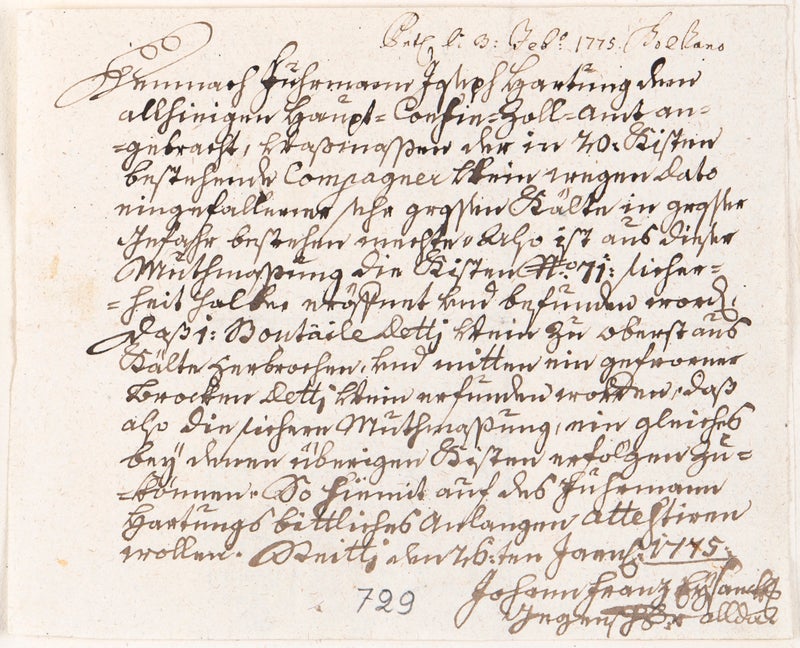 1775. Bolzano
Demnach Fuhrmann Joseph Hartung dem
allhiesigen Haupt= Confin=Zoll=Amt an=
=gebracht, waßmassen der in 20: Kisten
bestehende Compagner Wein wegen dato
eingefallener sehr grossen Kälte in grosser
Gefahr bestehen mechte. Also ist aus dieser
Muthmassung die Kisten No: 71: sicher=
=heit halber eröffnet und befunden word:
daß 1: Boutäile detti Wein zu oberst aus
Kälte zerbrochen, und mitten ein gefrorner
Brocken detti Wein erfunden worden, daß
also die sichere Muthmassung, ein gleiches
bey denen überigen Kisten erfolgen zu=
=können. So hiemit auf des Fuhrmann
Hartungs bittliches Anlangen attestiren
wollen. den 26:ten Jan: 1775:
Johann Franz
Gegenschr: allda
729